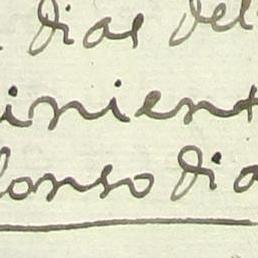 dias del
inient
lonso dia